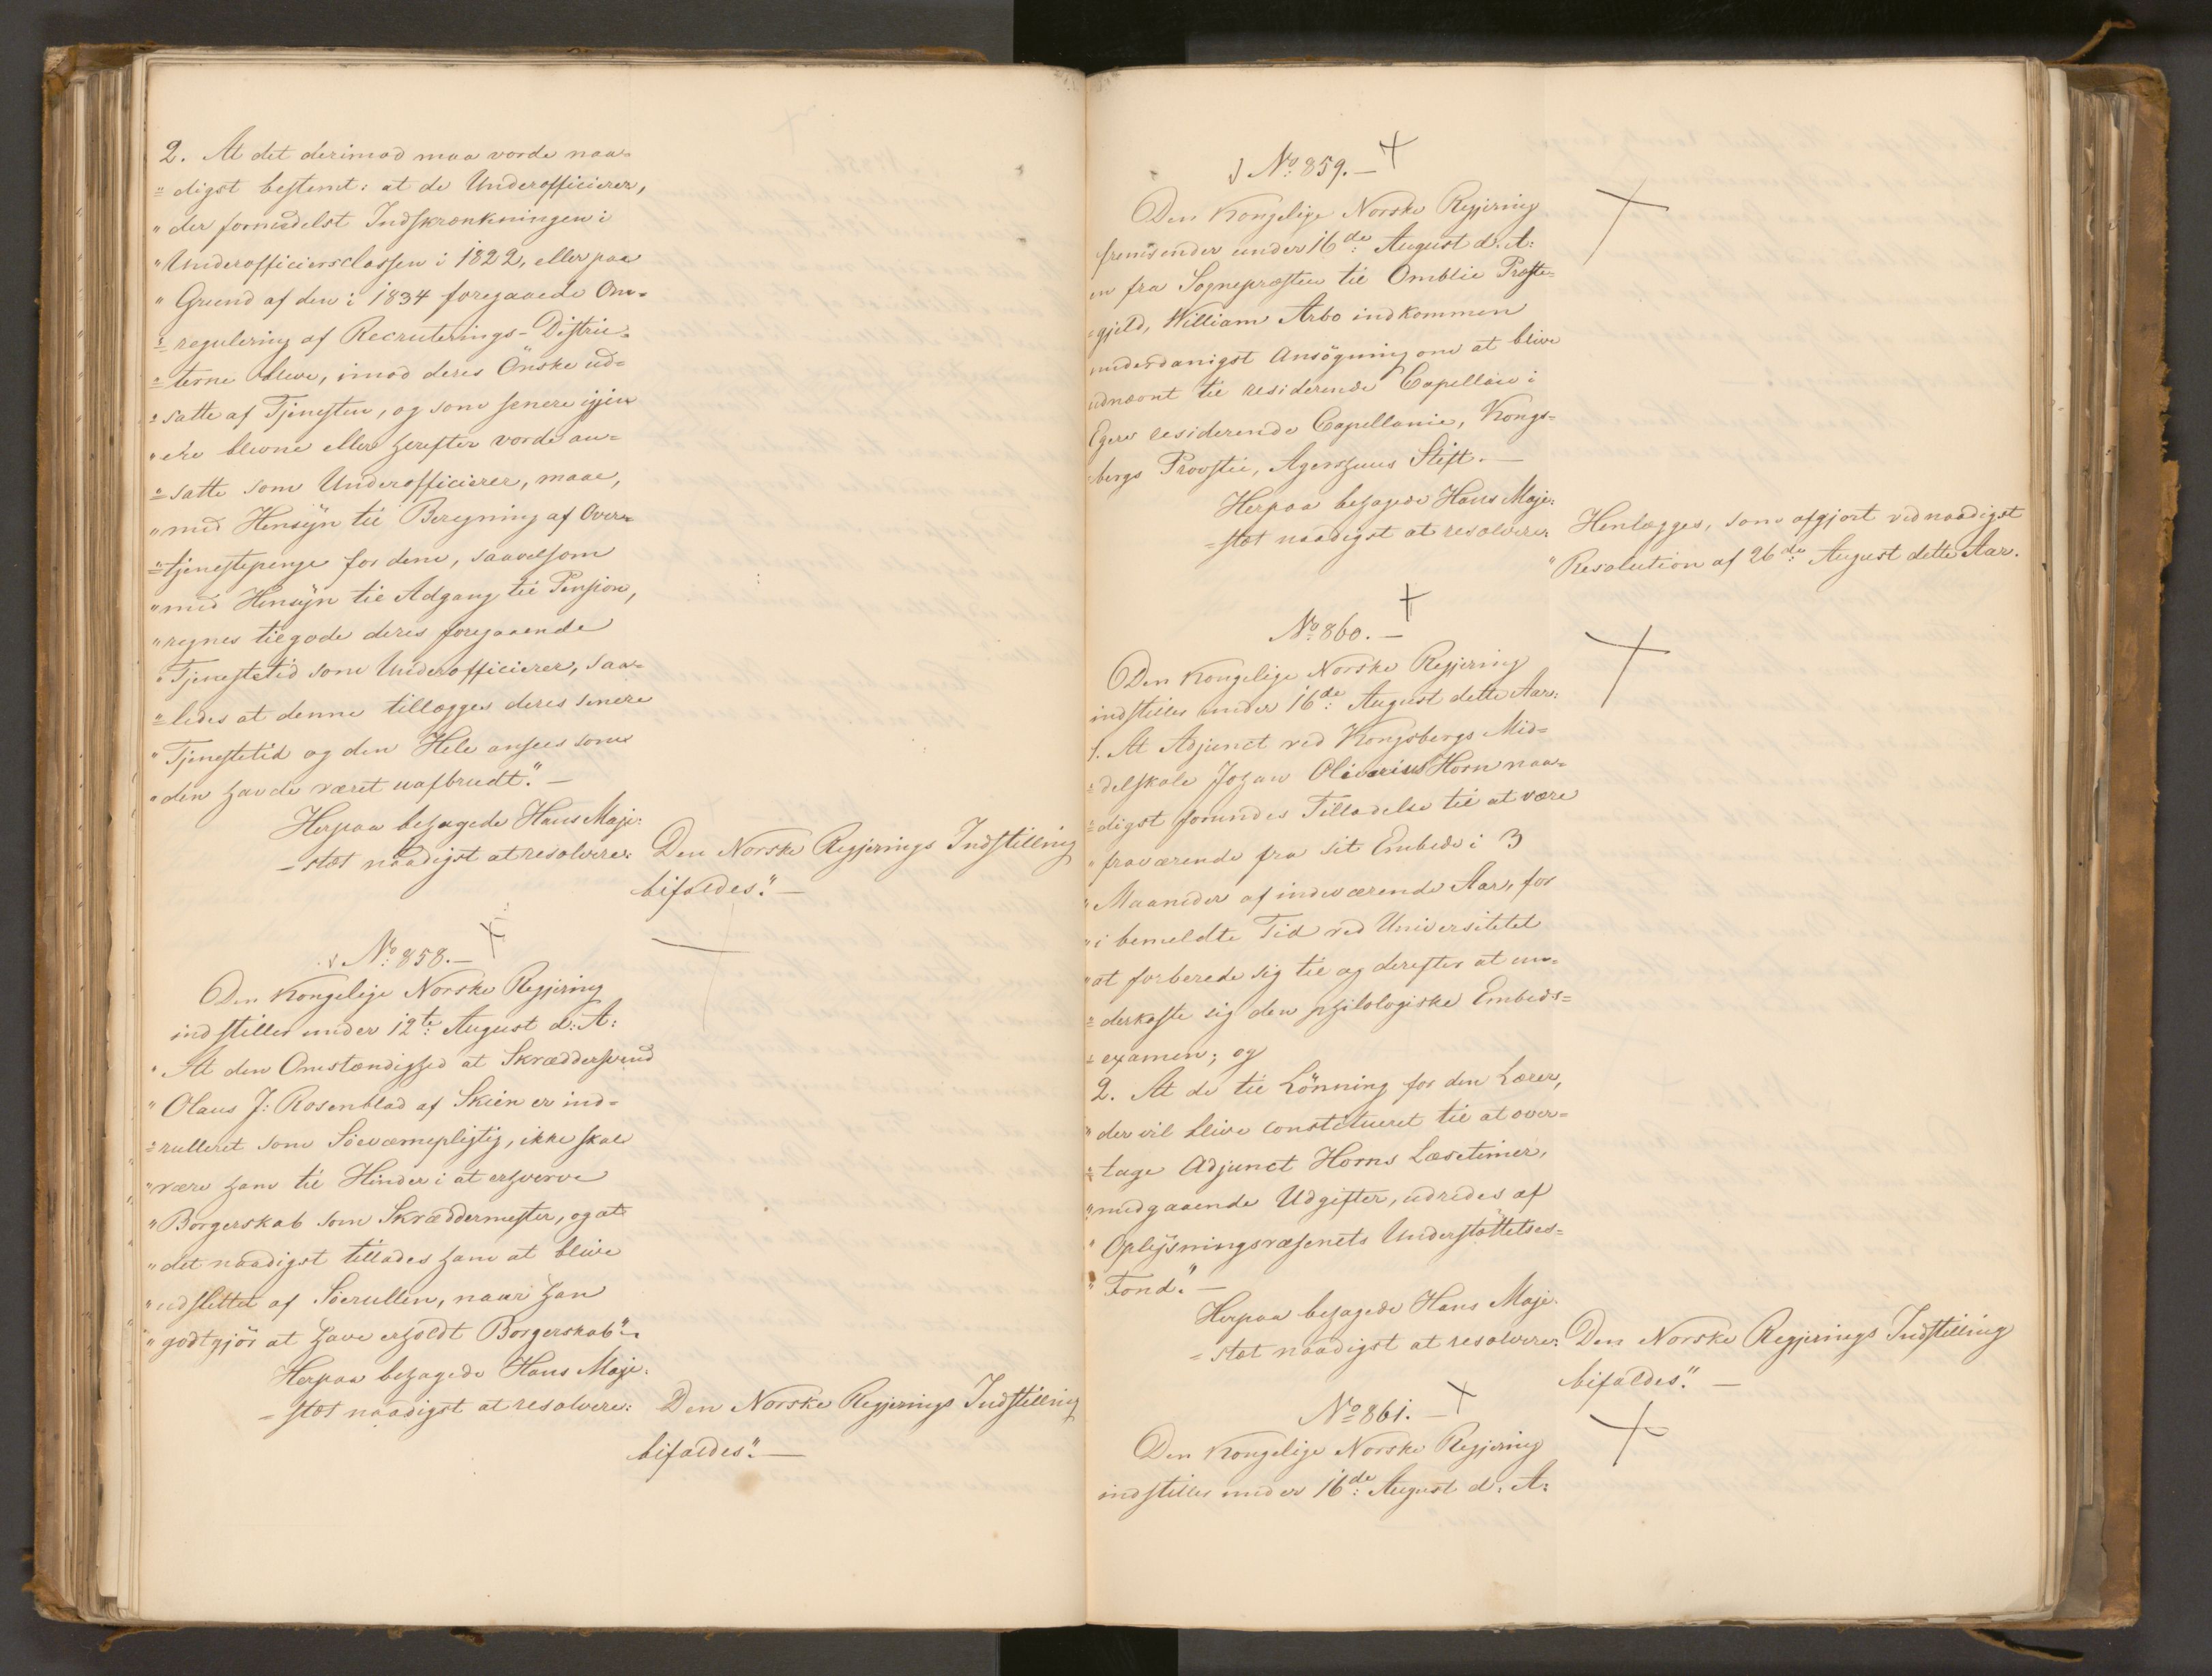 2. At det derimod maa vorde naa-
"digst bestemt: at de Underofficierer,
"der formedelst Indskrænkningen i
"Underofficiersclassen i 1822, eller paa
"Grund af den i 1834 foregaaede Om-
"regulering af Recruterings-Distric-
"terne bleve, imod deres Önske ud-
"satte af Tjenesten, og som senere igjen
"ere blevne eller herefter vorde an-
"satte som Underofficierer, maae,
"med Hensyn til Beregning af Over-
"tjenestepenge for dem, saavelsom
"med Hensyn til Adgang til Pension,
"regnes tilgode deres foregaaende
"Tjenestetid som Underofficierer, saa-
"ledes at denne tillægges deres senere
"Tjenestetid og den Hele ansees som
"den havde været uafbrudt." —
Herpaa behagede Hans Maje-
-stæt naadigst at resolvere: Den Norske Regjerings Indstilling
bifaldes." —
No 858. —
Den Kongelige Norske Regjering
indstiller under 12te August d: A:
"At den Omstændighed at Skræddersvend
"Olaus J: Rosenblad af Skien er ind-
"rulleret som Söeværnepligtig, ikke skal
"være ham til Hinder i at erhverve
"Borgerskab som Skræddermester, og at
"det naadigst tillades ham at blive
"udslettet af Söerullen, naar han
"godtgjör at have erholdt Borgerskab".
Herpaa behagede Hans Maje-
-stæt naadigst at resolvere: Den Norske Regjerings Indstilling
bifaldes." —
No 859. —
Den Kongelige Norske Regjering
fremsender under 16de August d: A:
en fra Sognepræsten til Omblie Præste-
gjeld, William Arbo indkommen
underdanigst Ansögning om at blive
udnævnt til residerende Capellan i
Egers residerende Capellanie, Kongs-
bergs Provstie, Agershuus Stift. —
Herpaa behagede Hans Maje-
-stæt naadigst at resolvere: Henlægges, som afgjort ved naadigst
"Resolution af 26de August dette Aar.
No 860. —
Den Kongelige Norske Regjering
indstiller under 16de August dette Aar:
1. At Adjunct ved Kongsbergs Mid-
"delskole Johan Olivarius Horn naa-
"digst forundes Tilladelse til at være
"fraværende fra sit Embede i 3
"Maaneder af indeværende Aar, for
"i bemeldte Tid ved Universitetet
"at forberede sig til og derefter at un-
"derkaste sig den philologiske Embeds-
"examen; og
2. At de til Lönning for den Lærer,
"der vil blive constitueret til at over-
"tage Adjunct Horns Læsetimer,
"medgaaende Udgifter, udredes af
"Oplysningsvæsenets Understöttelses-
"Fond." —
Herpaa behagede Hans Maje-
-stæt naadigst at resolvere: Den Norske Regjerings Indstilling
bifaldes." —
No 861. —
Den Kongelige Norske Regjering
indstiller under 16de August d: A: